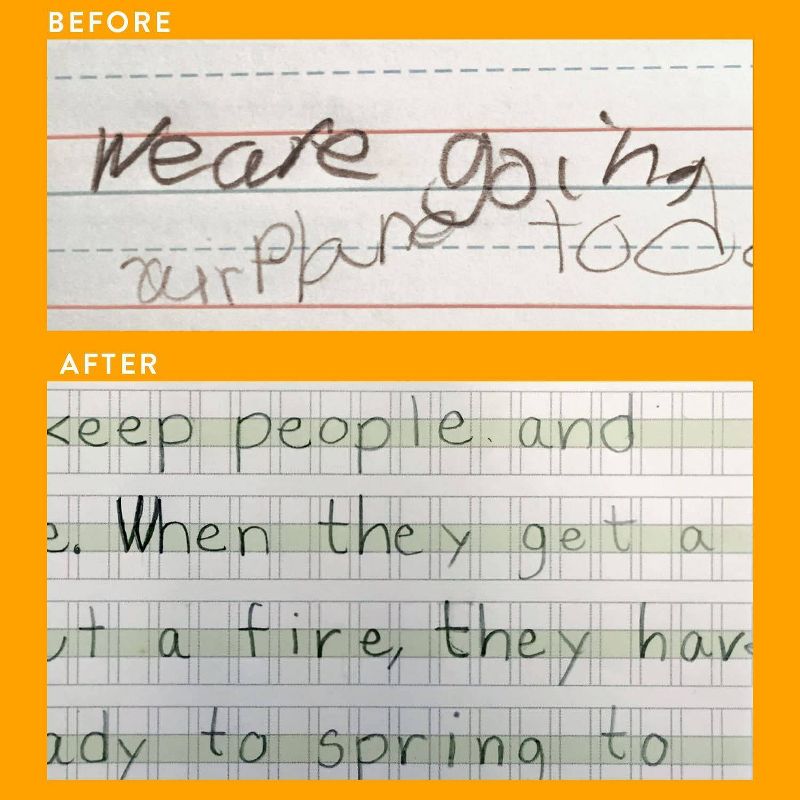 BEFORE
We are going
airplane tod
AFTER
keep people. and
e. When they get a
ut a fire, they hav
ady to spring to